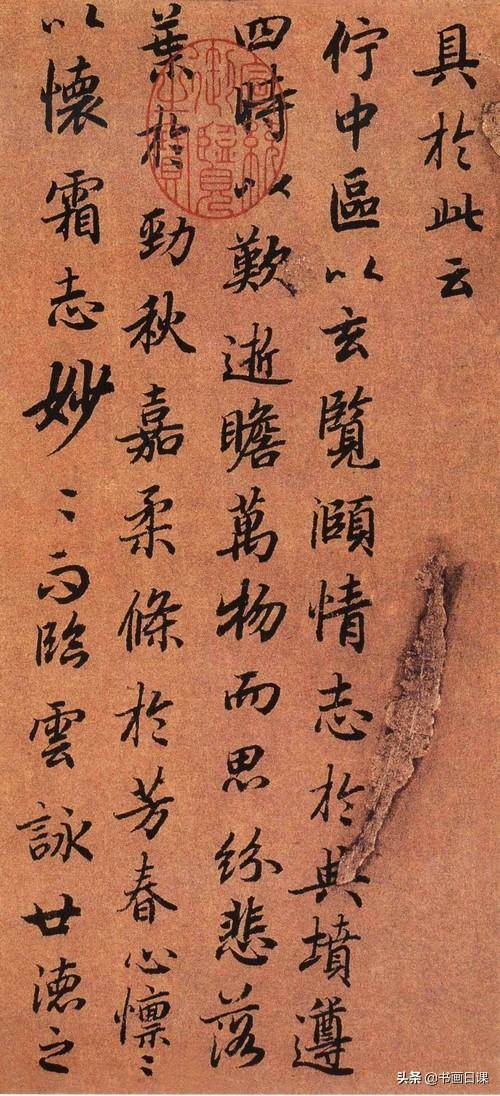 具於此云
佇中區以玄覽頤情志於典墳遵
四時以歎逝瞻萬物而思紛悲落
葉於勁秋嘉柔條於芳春心懍〻
以懷霜志妙〻而臨雲詠世德之
乾隆御覽之寶
头条 @书画日课